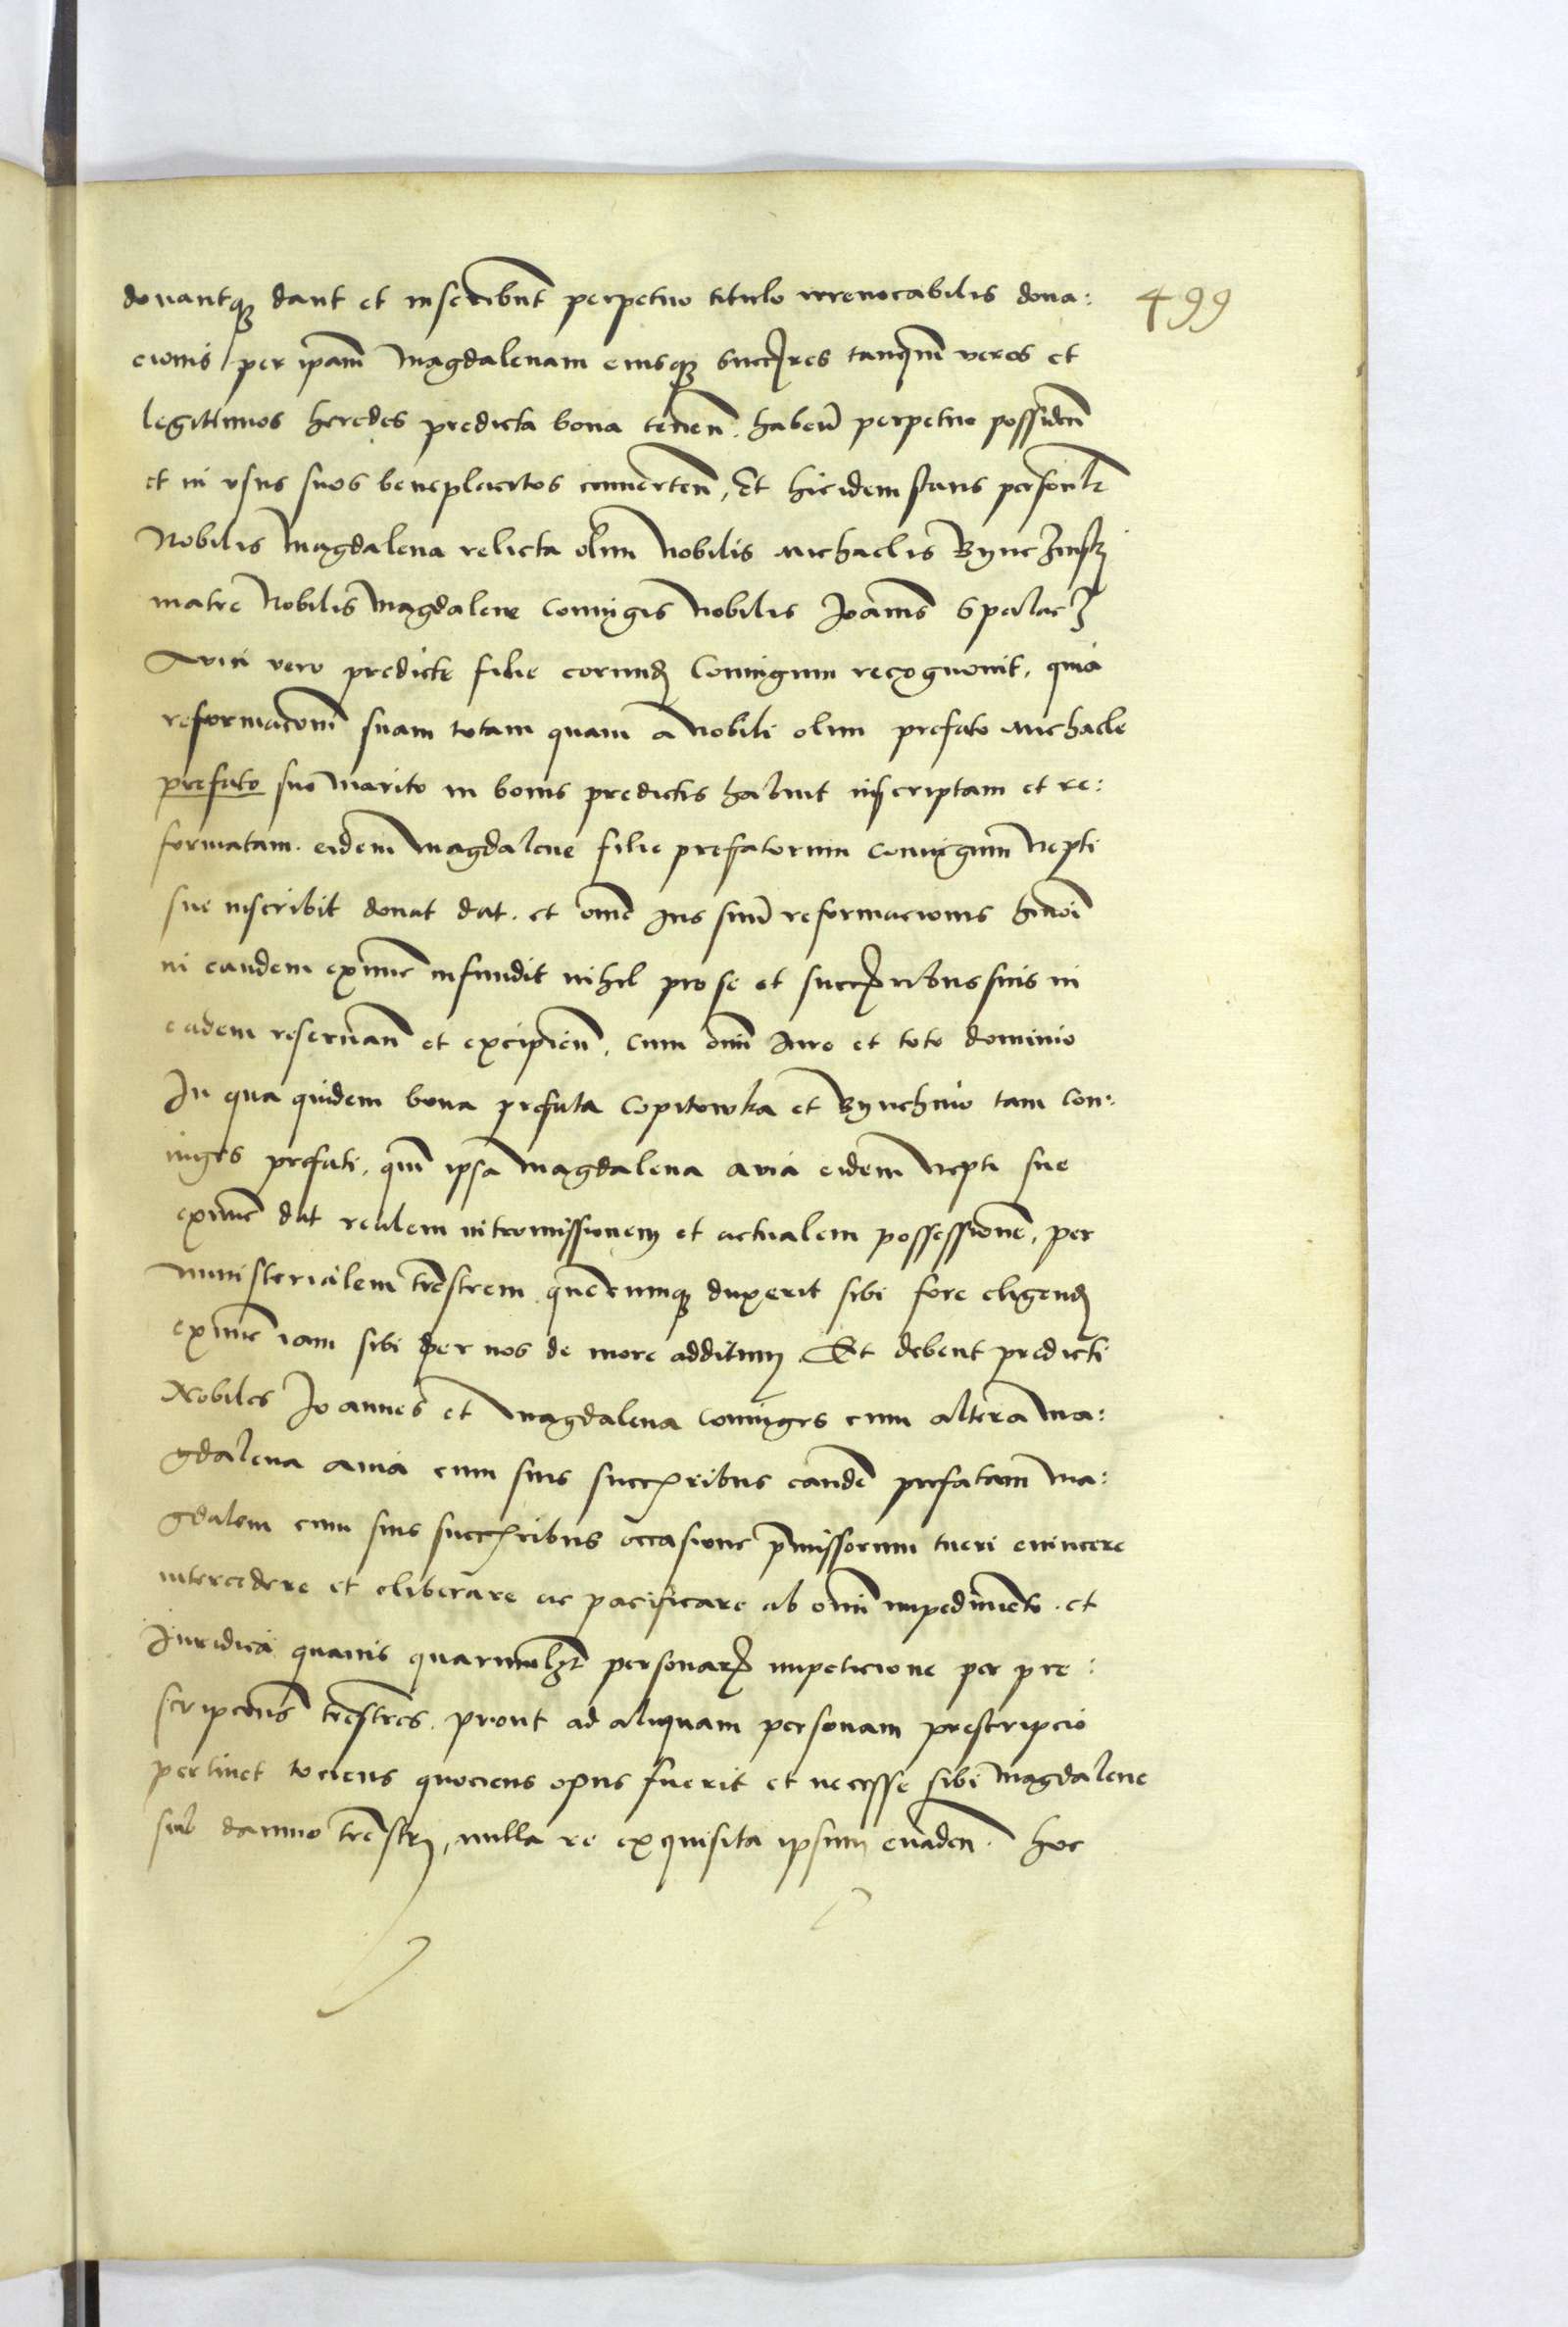 donantq₃ dant et inscribūt perpetuo titulo irrevocabilis dona:
cionis per ipām Magdalenam eiusq₃ succ̄res tanq̄m veros et
legittimos heredes predicta bona tenen̄. haben̄ perpetuo possiden̄
et in vsus suos beneplacitos conuerten̄, Et hic idem stans personl̄r
Nobilis Magdalena relicta olim Nobilis Michaelis
matre Nobilis Magdalene Coniugis Nobilis Joānis
Avia vero predicte filie eorund̄ Coniugum recognouit, quia
reformacōnē suam totam quam a Nobili olim prefato Michaele
prefato suo Marito in bonis predictis habuit inscriptam et re:
formatam. eidem Magdalene filie prefatorum coniugum Nepti
sue inscribit donat dat. et om̄e ius suū reformacionis hm̄oi
in eandem exnunc infundit nihil pro se et succ̄ribus suis in
eadem reseruan̄ et excipien̄, cum om̄i iure et toto dominio
In qua quidem bona prefata Copitowka et Bynchino tam Con:
iuges prefati, qm̄ ipsa Magdalena avia eidem Nepti sue
exnunc dat realem intromissionem et actualem possessionē, per
ministerialem trēstrem quēcumq₃ duxerit sibi fore eligend̄
exnunc iam sibi per nos de more additum Et debent predicti
Nobiles Joannes et Magdalena Coniuges cum altera Ma:
gdalena avia cum suis succ̄ribus eandē prefatam Ma:
gdalem cum suis succ̄ribus occasione p̄missorum tueri euincere
intercedere et eliberare ac pacificare ab om̄i impedimento. et
Juridica quauis quarumlib̄t personar̄ impeticione per pre:
scripcōns trēstres. prout ad aliquam personam prescripcio
pertinet tociens quociens opus fuerit et necesse sibi Magdalene
sub damno trēstrj, nulla re exquisita ipsum euaden̄. hoc
499